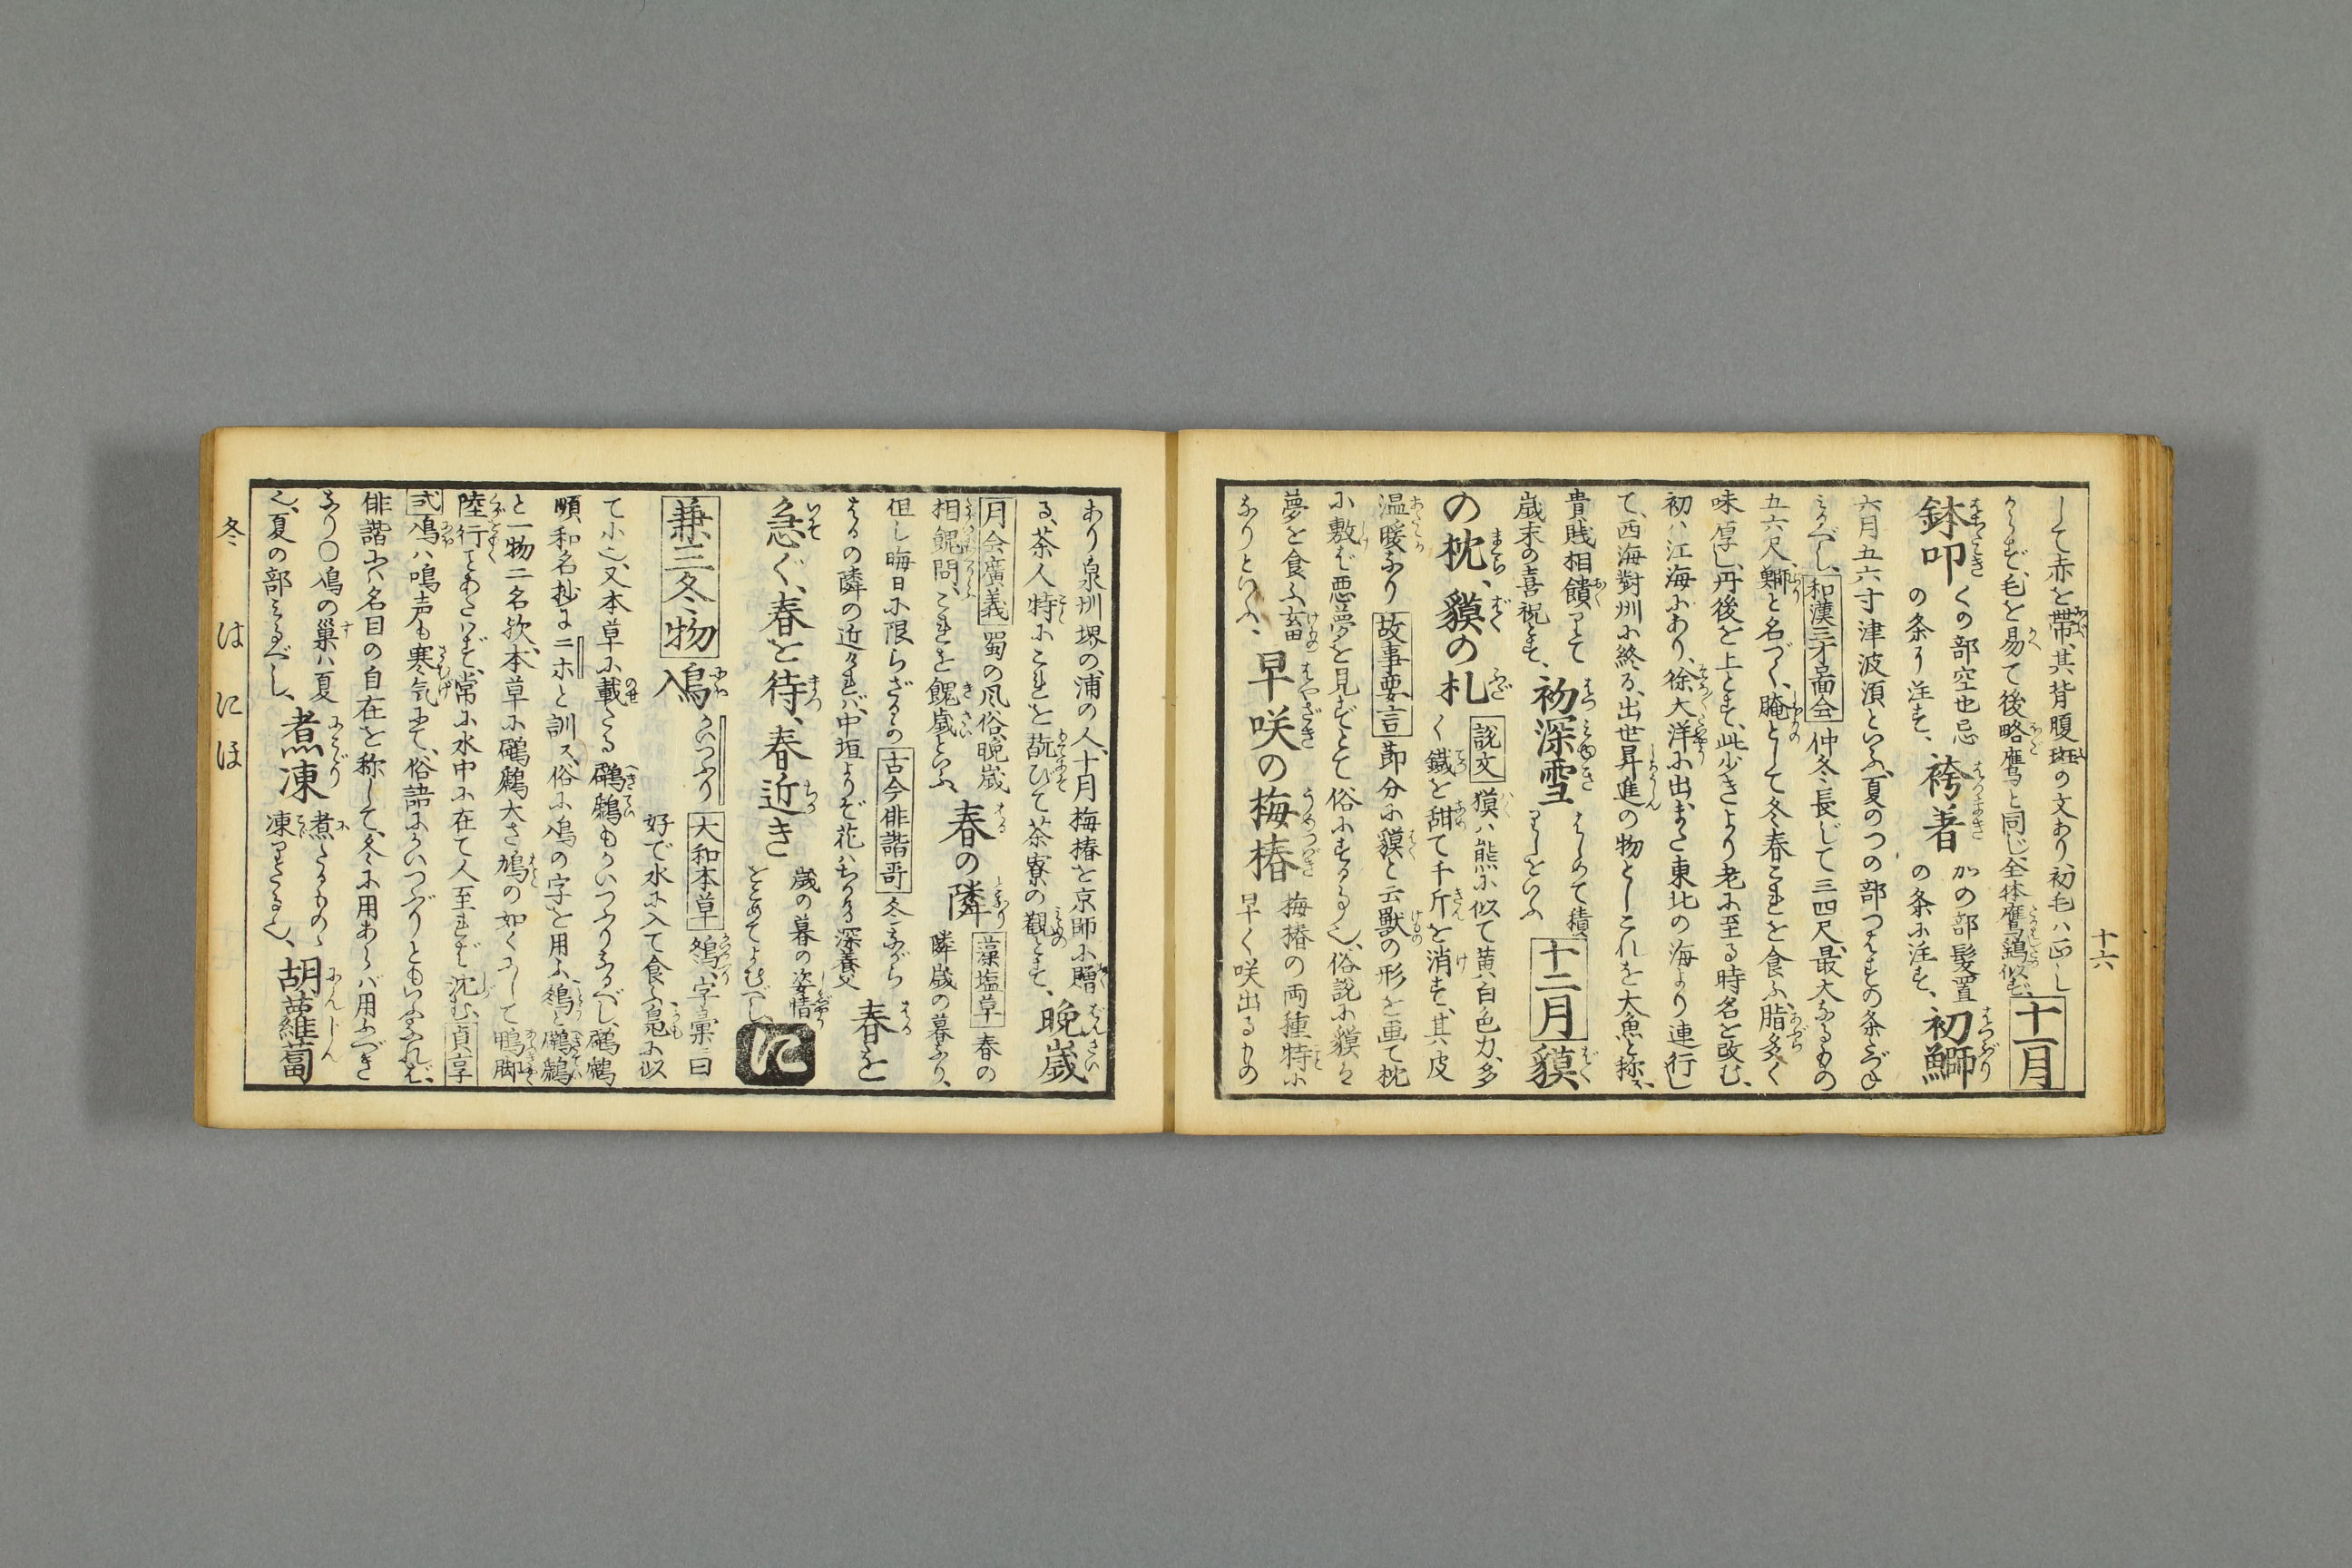 十六
して赤を帯、其背腹斑の文あり初毛ハ正し
からず、毛を易て後略鷹と同じ全体鷹鷂似ず、十一月
鉢叩 くの部空也忌の条に注す、袴著 かの部髪置の条に注す、初鰤
六月五六寸津波須といふ、夏のつの部つはすの条と
みるべし、和漢三才圖会 仲冬長じて三四尺、最大なるもの
五六尺、鰤と名づく、腌として冬春これを食ふ、脂多く
味厚し、丹後を上とす、此少きより老に至る時名を改む、
初ハ江海にあり、徐大洋に出また東北の海より連行し
て、西海對州に終る、出世昇進の物としこれを大魚と称ス、
貴賎相饋りて歳末の喜祝とす、初深雪 はじめて積りしをいふ 十二月 貘
の枕、貘の札 説文 獏ハ熊に似て黄白色力多く鐵を甜て千斤を消す、其皮
温暖なり 故事要言 節分に貘と云獸の形を画て枕
に敷ば悪夢を見ずとて俗にするる也、俗説に貘ハ
夢を食ふ獣なりといふ、早咲の梅椿 梅椿の両種特に早く咲出るもの
あり泉州堺の浦の人、十月梅椿を京師に贈
る、茶人特にこれを翫びて茶寮の觀とす、晩歳
月令廣義 蜀の風俗、晩歳相餽問、これを餽歳といふ、春の隣 藻塩草 春の隣歳の暮なり、
但し晦日に限らざるの 古今俳諧哥 冬ながら
はるの隣の近ければ、中垣よりぞ花ハちりける 深養父 春を
急ぐ、春を待、春近き 歳の暮の姿情をこめてよむべし に
兼三冬物 鳰 かいつふり 大和本草 鸊、字彙ニ曰好で水に入て食ふ、鳧に似
て小也、又本草に載たる鸊鷉もかいつふりなるべし、鸊鷉
順和名抄に ニホと訓ス、俗に鳰の字を用ふ、
と一物二名歟、本草に鸊鷉大さ鳩の如くにして鴨脚
陸行ことあたはず、常に水中に在て人至れば沈む、貞享
式 鳰ハ鳴声も寒気にて、俗語にかいつぶりともいふなれば、
俳諧にハ名目の自在を称して、冬に用あらバ用ふべき
なり○鳰の巣ハ夏也、夏の部みるべし、煮凍 煮たるものゝ凍りたる也、胡蘿蔔
冬 は に ほ